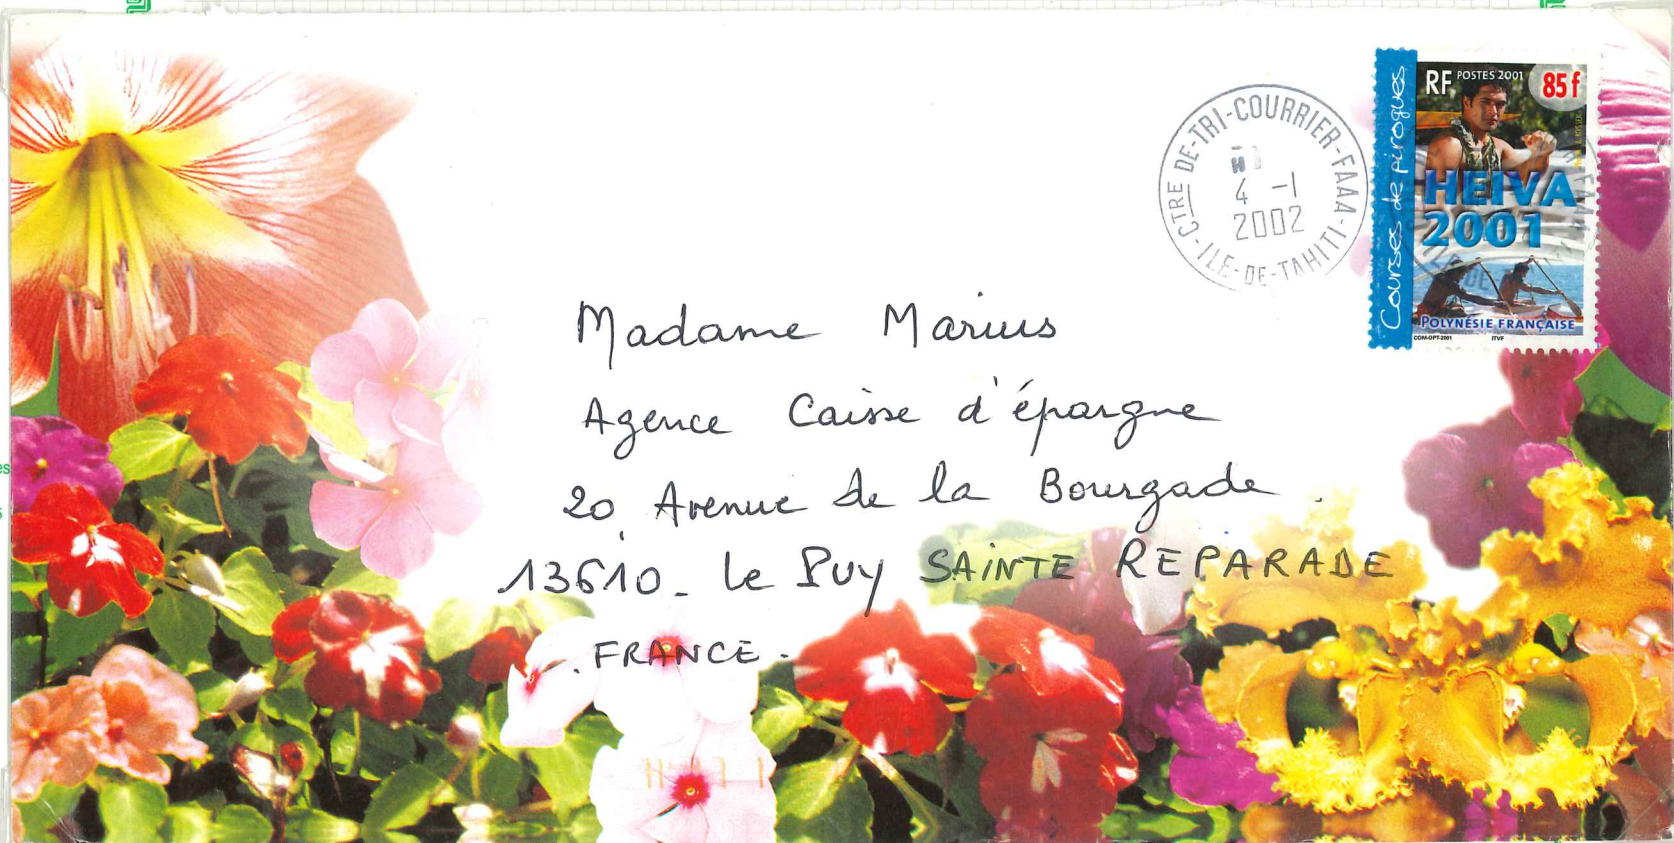 C-TRE DE-TRI-COURRIER-FAAA-ILE-DE-TAHITI-
4 -1
2002
Courses de pirogues
RF POSTES 2001 85f
HEIVA
2001
POLYNÉSIE FRANÇAISE
COM-OPT-2001 ITVF
Madame Marius
Agence Caisse d'épargne
20, Avenue de la Bourgade.
13610_ Le Puy SAiNTE REPARADE
. FRANCE.